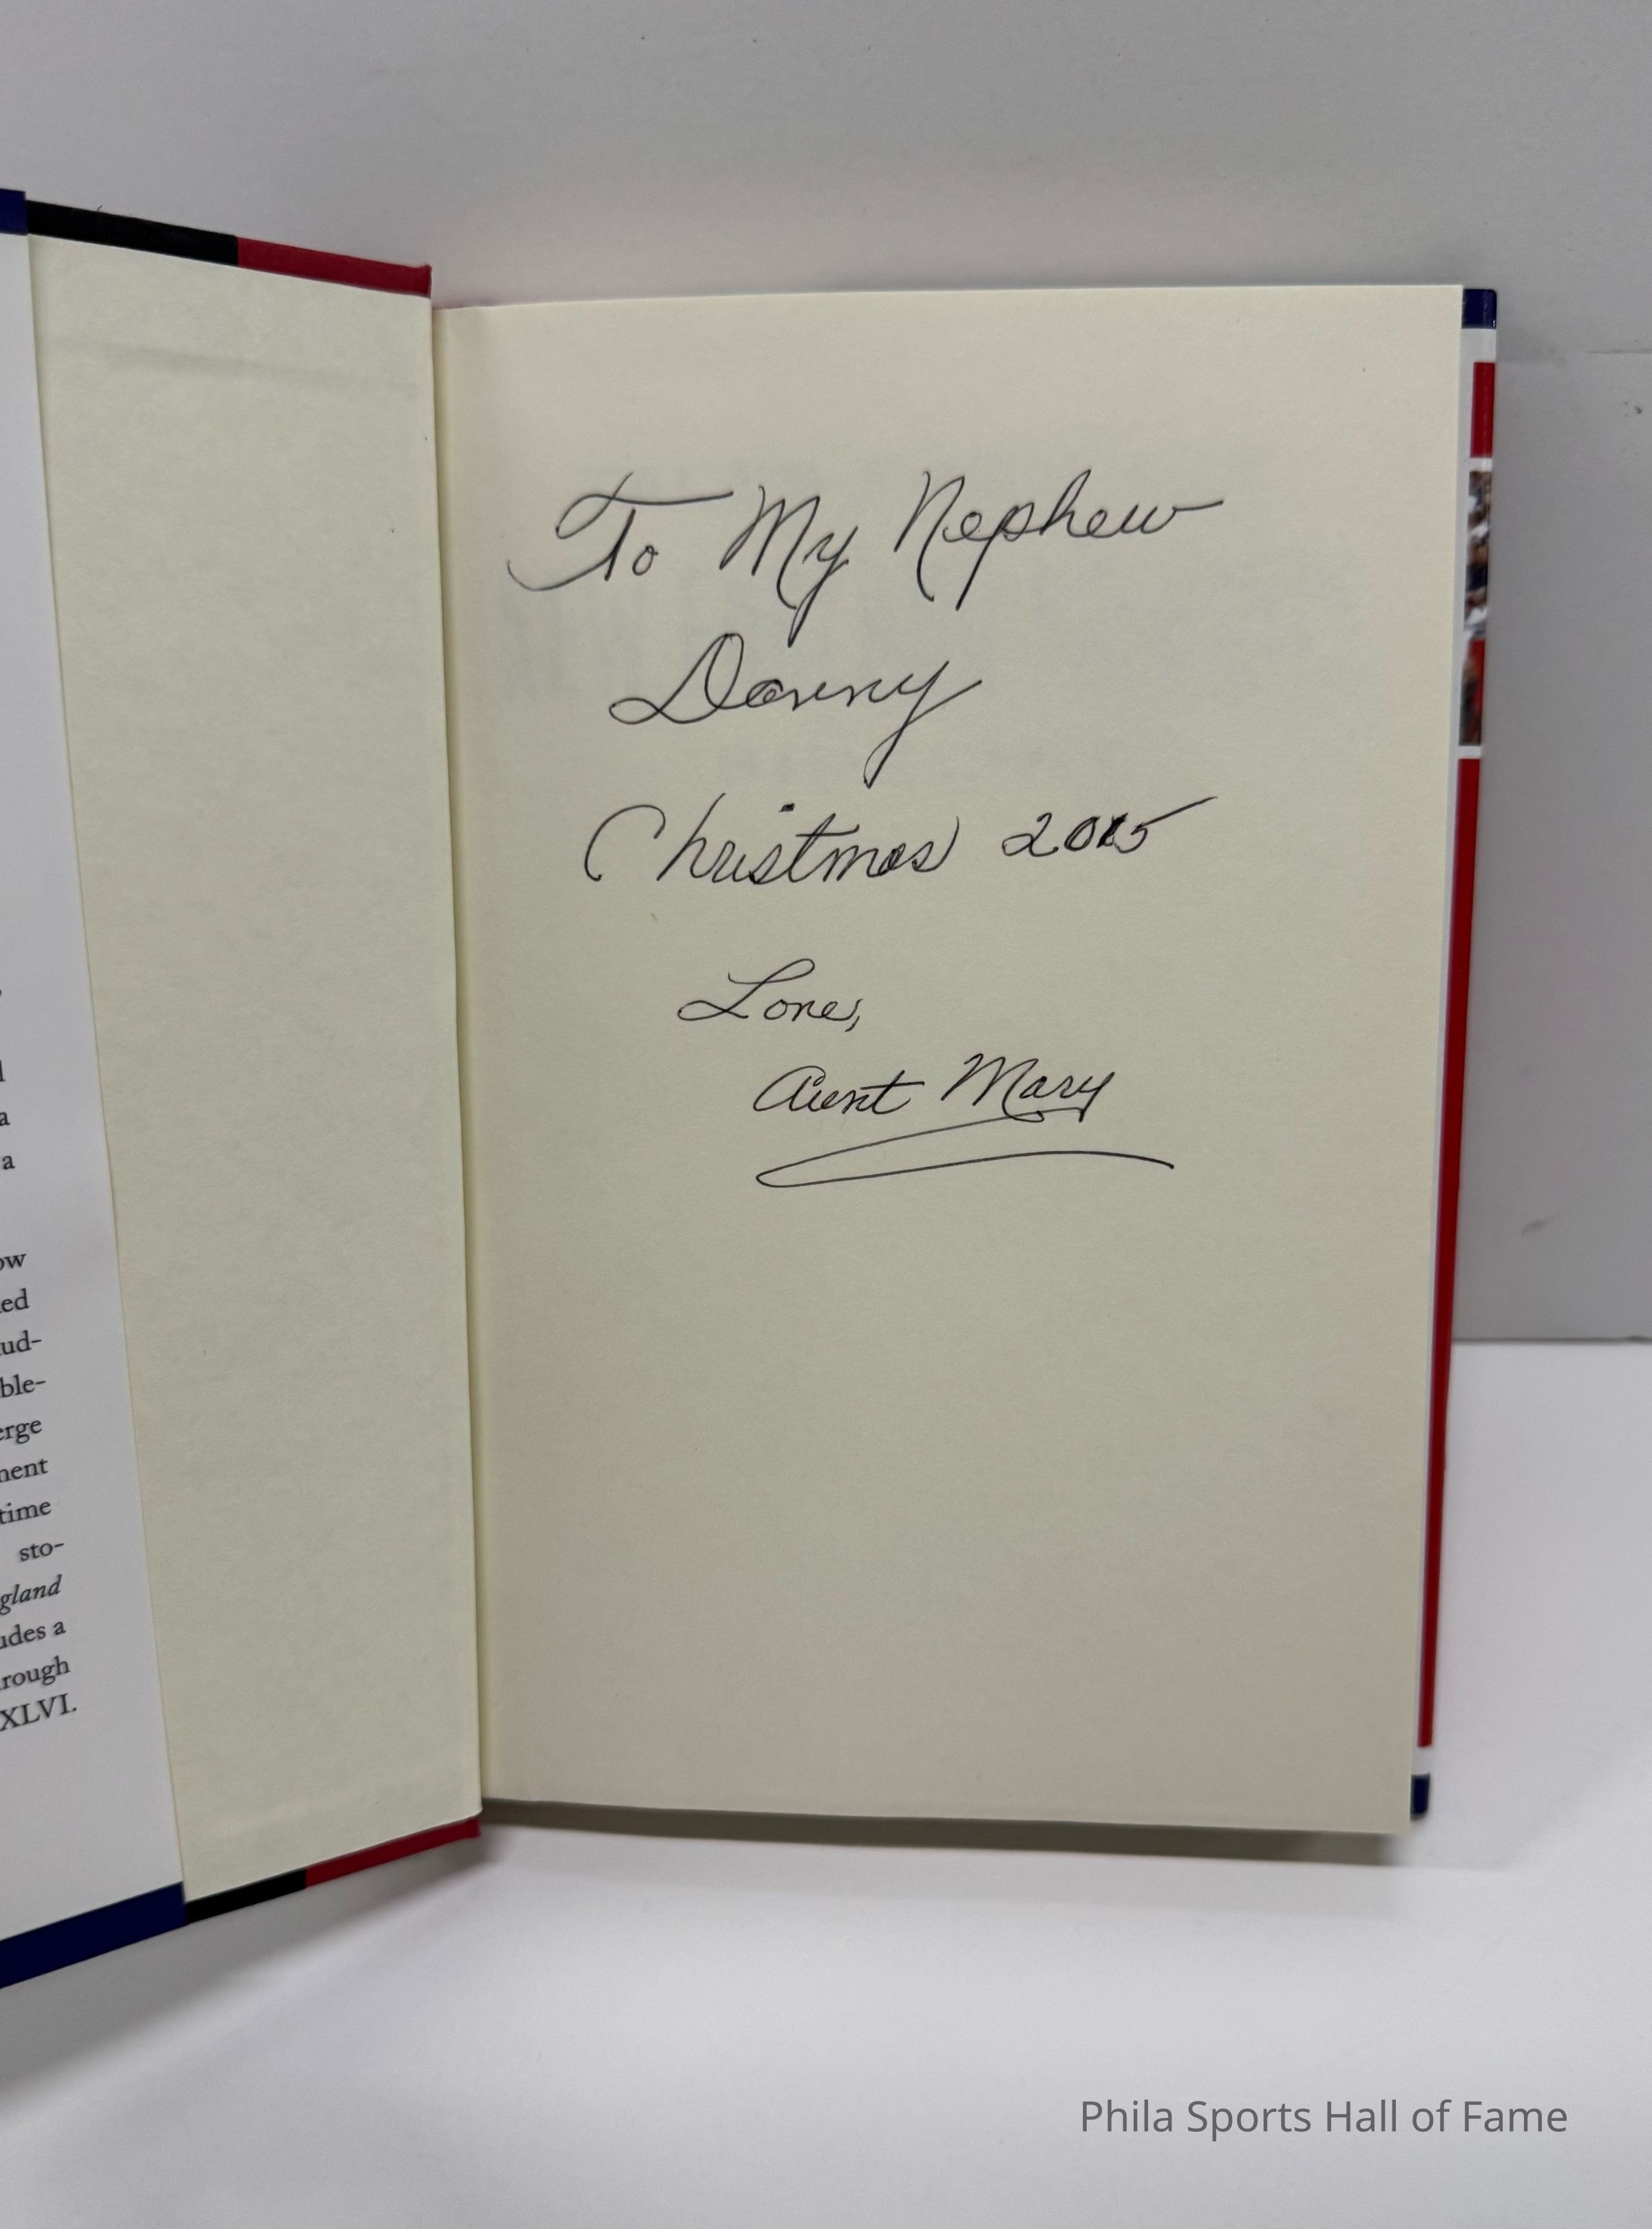 a
a
ow
ble-
erge
time
sto-
gland
udes a
rough
XLVI.
To My Nephew
Danny
Christmas 2015
Love,
Aunt Mary
Phila Sports Hall of Fame